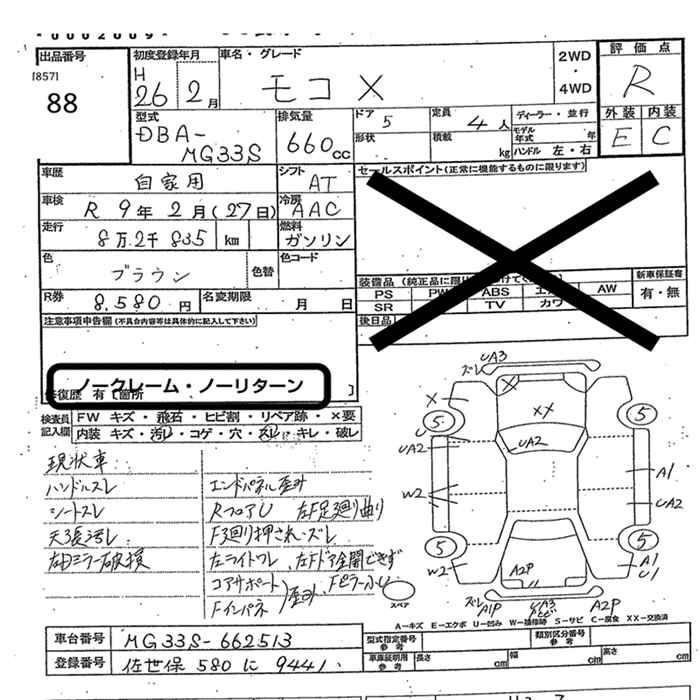 出品番号
[857]
88
初度登録年月
H
26 2月
車名・グレード
モコ X
2WD
・
4WD
評価点
R
外装 内装
E C
型式
DBA-
MG33S
排気量
660cc
ドア 5
形状
定員 4人
積載 kg
ディーラー・並行
モデル年式 年
ハンドル 左・右
車歴 自家用
シフト AT
車検 R 9年2月(27日)
冷房 AAC
走行 8万2千835 km
燃料 ガソリン
色 ブラウン 色替
色コード
R券 8,580円
名変期限 月 日
セールスポイント(正常に機能するものに限ります)
新車保証書
有・無
PS PW ABS AW
SR TV
後日品
注意事項申告欄(不具合内容等は具体的に記入して下さい)
ノークレーム・ノーリターン
修復歴 有〔箇所 〕
検査員記入欄
FW キズ・飛石・ヒビ割・リペア跡・×要
内装 キズ・汚レ・コゲ・穴・スレ・キレ・破レ
現状車
ハンドルスレ
シートスレ
天張汚レ
左右ミラー破損
エンドパネル歪み
RフロアU 左F足廻り曲り
F廻り押され・ズレ
左ライトワレ 左Fドア全開できず
コアサポート
Fインパネ
歪み
ズレ UA3
X
XX
5
5
U
UA2
UA2
W2
A1
UA2
5
5
W2
A2P
U
A1
U1
スペア
ズレ A1P
UA3
A2P
A=キズ E=エクボ U=凹み W=補修跡 S=サビ C=腐食 XX=交換済
車台番号 MG33S-662513
登録番号 佐世保 580 に 9441
型式指定番号
参考
類別区分番号
参考
車庫証明用
参考
長さ cm
幅 cm
高さ cm